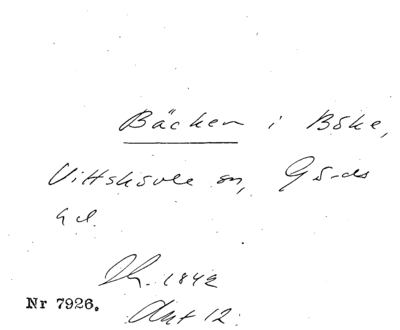 Bäcken i Böke,
Vittskövle sn, Gärds
hd.
Sk. 1842
Nr 7926.
Akt 12.